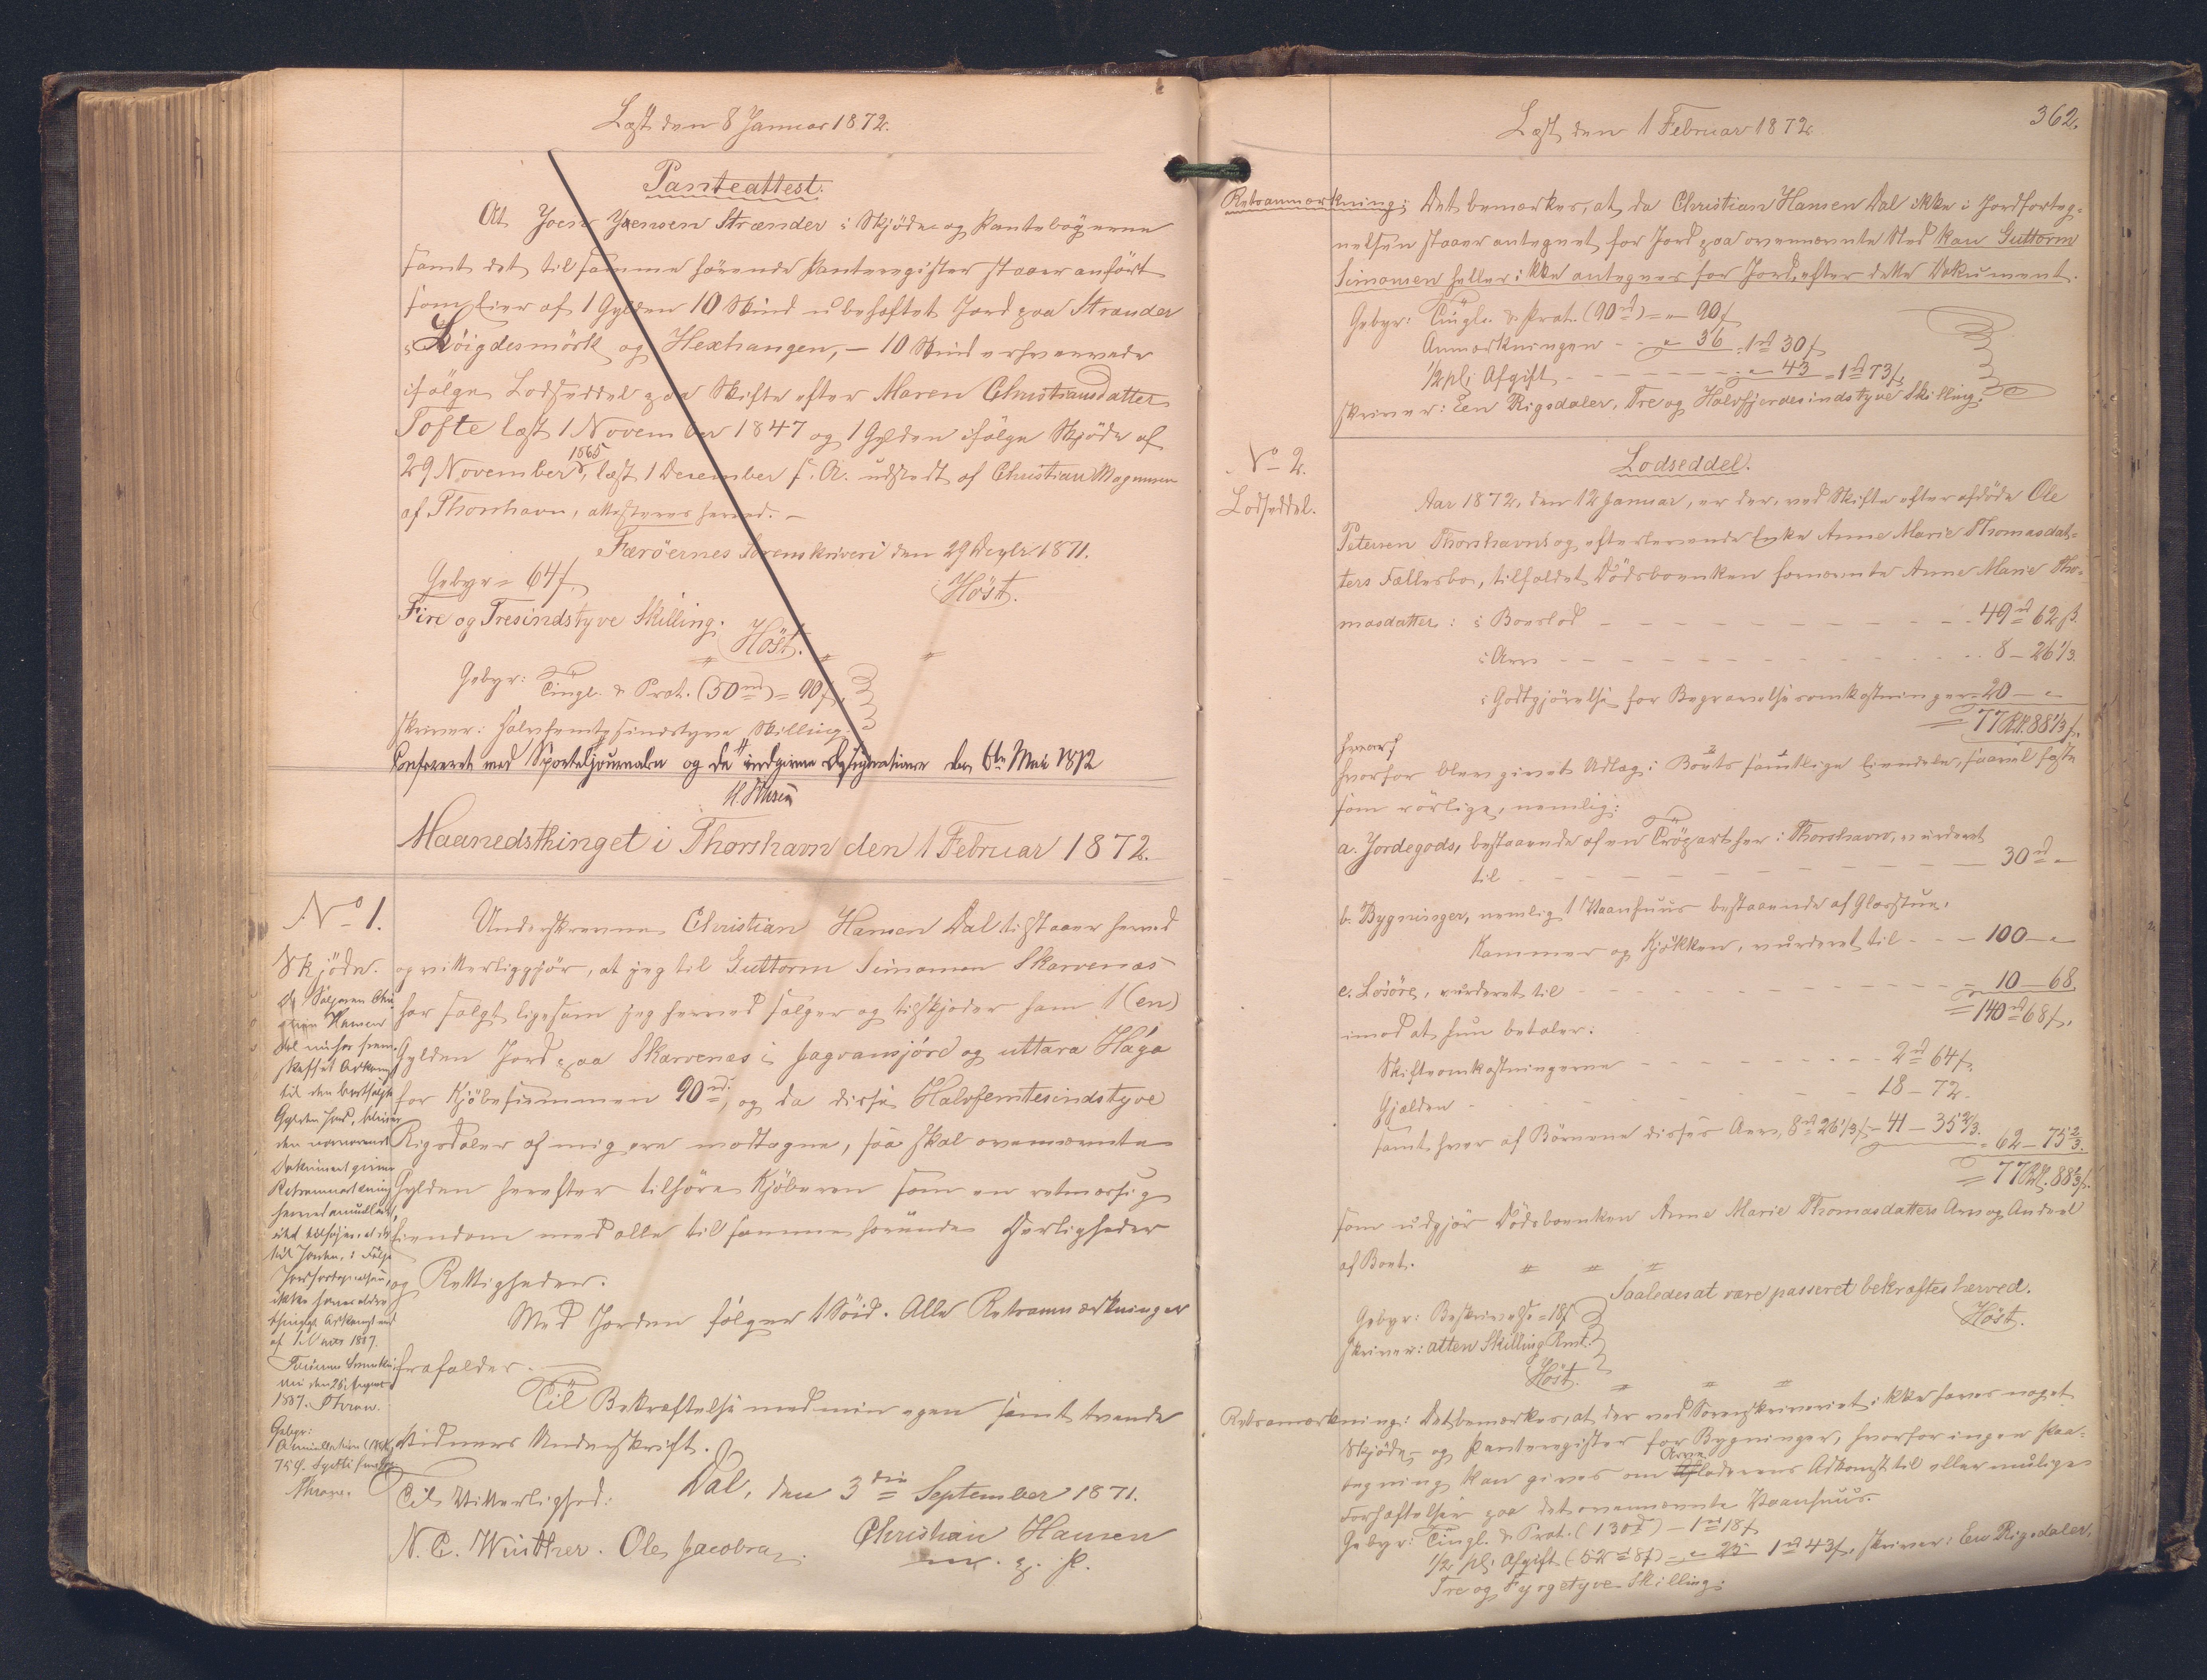 Læst den 8 Januar 1872.
Panteattest.
At Joen Joensen Strænder i Skjøde og Pantebøgerne
samt det til samme hørende Panteregister staaer anført
som Eier af 1 Gylden 10 Skind ubehæftet Jord paa Strænder
i Køigdesmørk og Hexhangen, – 10 Skind erhvervede
ifølge Lodseddel paa Skifte efter Maren Christiansdatter
Tofte læst 1 November 1847 og 1 Gylden ifølge Skjøde af
29 November 1865, læst 1 December s. A. udstedt af Christian Magnusen
af Thorshavn, attesteres herved. –
Færöernes Sorenskriveri den 29 Decbr 1871.
Gebyr = 64 s.
Höst.
Fire og Tresindstyve Skilling.
Höst.
Gebyr: Tingl. & Prot. (50 rd) = 90 s.
skriver: halvfemtesindstyve Skilling.
Confereret med Sporteljournalen og de indgivne Designationer den 6te Mai 1872
Maanedsthinget i Thorshavn den 1 Februar 1872.
No 1.
Skjöde.
Underskrevne Christian Hansen Dal tilstaaer herved
og vitterliggjør, at jeg til Guttorm Simonsen Skarvenæs
har solgt, ligesom jeg herved sælger og tilskjøder ham 1 (en)
Gylden Jord paa Skarvenæs i Fagvansfjörd og uttara Hága
for Kjöbesummen 90 rd, og da disse Halvfemtesindstyve
Rigsdaler af mig ere modtagne, saa skal ovennævnte
Gylden herefter tilhøre Kjøberen som en retmæssig
Eiendom med alle til samme hørende Herligheder
og Rettigheder.
Med Jorden følger 1 Söid. Alle Retsanmærkninger
frafalder.
Til Bekræftelse med min egen samt tvende
Vidners Underskrift.
Dal, den 3die September 1871.
Til Vitterlighed:
Christian Hansen
N. C. Winther. Ole Jacobsen.
m. f. P.
Da Sælgeren Chri
stian Hansen
Dal nu har frem-
skaffet Adkomst
til den bortsolgte
Gylden Jord, bliver
den nærværende
Dokument givne
Retsanmærkning
herved annulleret,
af 1 Marts 1887.
1887.
Gebyr:
362.
Læst den 1 Februar 1872
Retsanmærkning: Det bemærkes, at da Christian Hansen Dal ikke i Jordforteg-
nelsen staaer antegnet for Jord paa ovennævnte Sted kan Guttorm
Simonsen heller ikke antegnes for Jord efter dette Dokument.
Gebyr: Tingl. & Prot. (90 rd) = " – 90 s
Anmærkningen - - " – 36 = 1 rd 30 s
½ pCt Afgift - - - " – 43 = 1 rd 73 s,
skriver: Een Rigsdaler, Tre og Halvfjerdesindstyve Skilling.
No 2.
Lodseddel.
Lodseddel.
Aar 1872, den 12 Januar, er der, ved Skifte efter afdøde Ole
Petersen Thorshavns og efterlevende Enke Anne Marie Thomasdat-
ters Fællesbo, tilfaldet Dödsboenken fornævnte Anne Marie Tho-
masdatter: i Boeslod - - - 49 rd 62 s.
i Arv - - - 8 – 26 1/3.
i Godtgjörelse for Begravelsesomkostninger = 20 – "
= 77 Rd. 88 1/3 s.
hvorfor blev givet Udlæg i Boets samtlige Eiendele, saavel faste
som rørlige, nemlig:
a. Jordegods, bestaaende af en Tröpart her i Thorshavn, vurderet
til - - - 30 rd "
b. Bygninger, nemlig 1 Vaanhuus bestaaende af Glasstue,
Kammer og Kjøkken, vurderet til - - - 100 – "
c. Løsøre, vurderet til - - - 10 – 68
= 140 rd 68 s.
imod at hun betaler:
Skifteomkostningerne - - - 2 rd 64 s.
Gjælden - - - 18 – 72.
samt hver af Børnene disses Arv, 8 rd 26 1/3 s = 41 – 35 2/3. = 62 – 75 2/3.
= 77 Rd. 88 1/3 s.
som udgjør Dödsboenken Anne Marie Thomasdatters Arv og Andeel
af Boet.
Saaledes at være passeret bekræftes herved.
Höst.
Gebyr: Beskrivelse = 18 s
skriver: atten Skilling Rmt.
Höst.
Retsanmærkning: Det bemærkes, at der ved Sorenskriveriet ikke haves noget
Skjøde- og Panteregister for Bygninger, hvorfor ingen Paa-
tegning kan gives om Arveladerens Adkomst til eller mulige
Forhæftelser paa det ovennævnte Vaanhuus.
Gebyr: Tingl. & Prot. (130 rd) – 1 rd 18 s
½ pCt Afgift (52 rd 8 s) = " – 25 1 rd 43 s, skriver: En Rigsdaler,
Tre og Fyrgetyve Skilling.